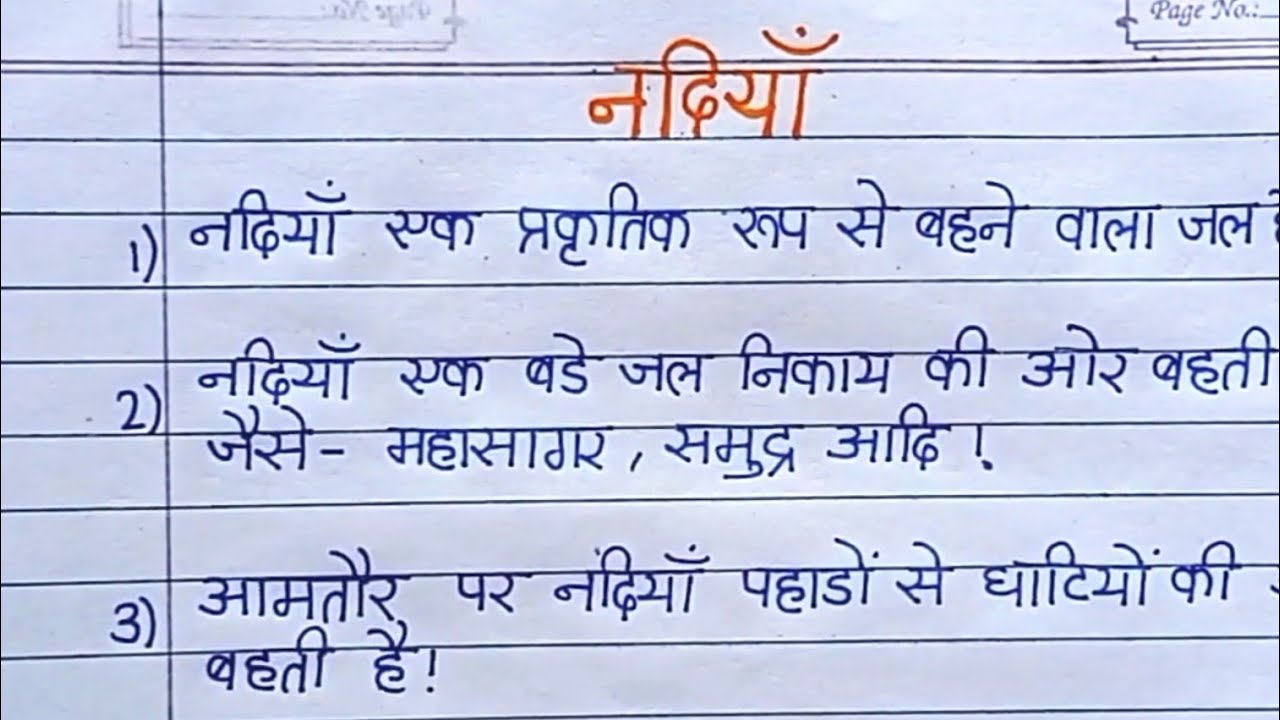 Page No.:
नदियाँ
1) नदियाँ एक प्रकृतिक रूप से बहने वाला जल
2) नदियाँ एक बडे जल निकाय की ओर बहती
जैसे - महासागर, समुद्र आदि !
3) आमतौर पर नंदियाँ पहाडों से घाटियों की
बहती है !